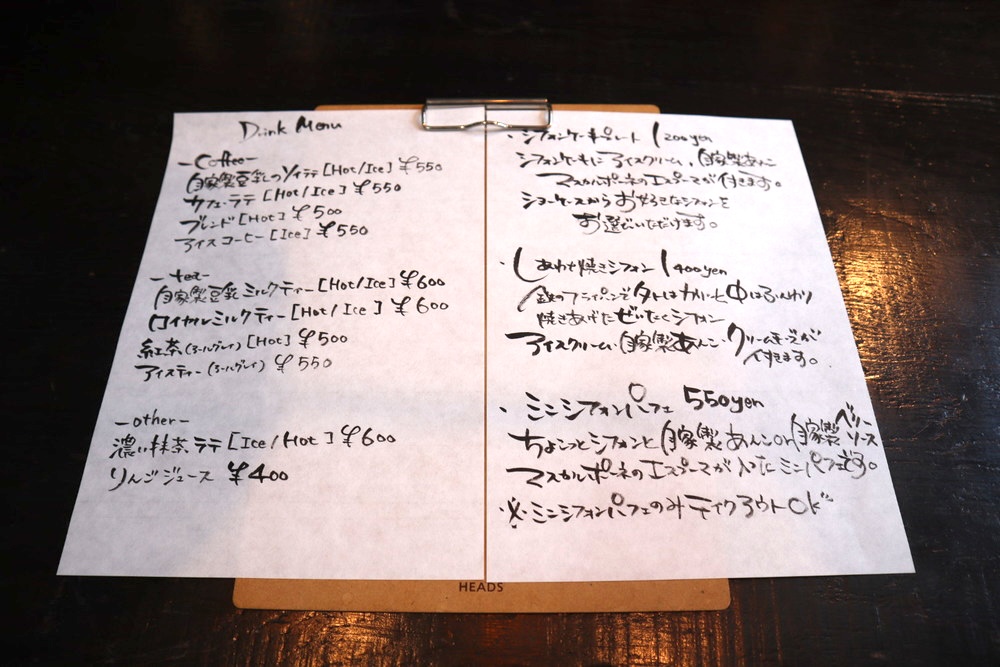 Drink Menu
-Coffee-
自家製豆乳のソイラテ [Hot/Ice] ¥550
カフェ・ラテ [Hot/Ice] ¥550
ブレンド [Hot] ¥500
アイスコーヒー [Ice] ¥550
-tea-
自家製豆乳ミルクティー [Hot/Ice] ¥600
ロイヤルミルクティー [Hot/Ice] ¥600
紅茶(アールグレイ) [Hot] ¥500
アイスティー(アールグレイ) ¥550
-other-
濃い抹茶ラテ [Ice/Hot] ¥600
りんごジュース ¥400
・シフォンケーキプレート 1200yen
シフォンケーキにアイスクリーム、自家製あんこ
マスカルポーネのエスプーマが付きます。
ショーケースからお好きなシフォンを
お選びいただけます。
・しあわせ焼きシフォン 1400yen
鉄のフライパンで外はカリッと中はふんわり
焼きあげたぜいたくシフォン
アイスクリーム・自家製あんこ・クリームチーズが
付きます。
・ミニシフォンパフェ 550yen
ちょこっとシフォンと自家製あんこor自家製ベリー
ソース
マスカルポーネのエスプーマが入ったミニパフェです。
※ミニシフォンパフェのみテイクアウトOK
HEADS